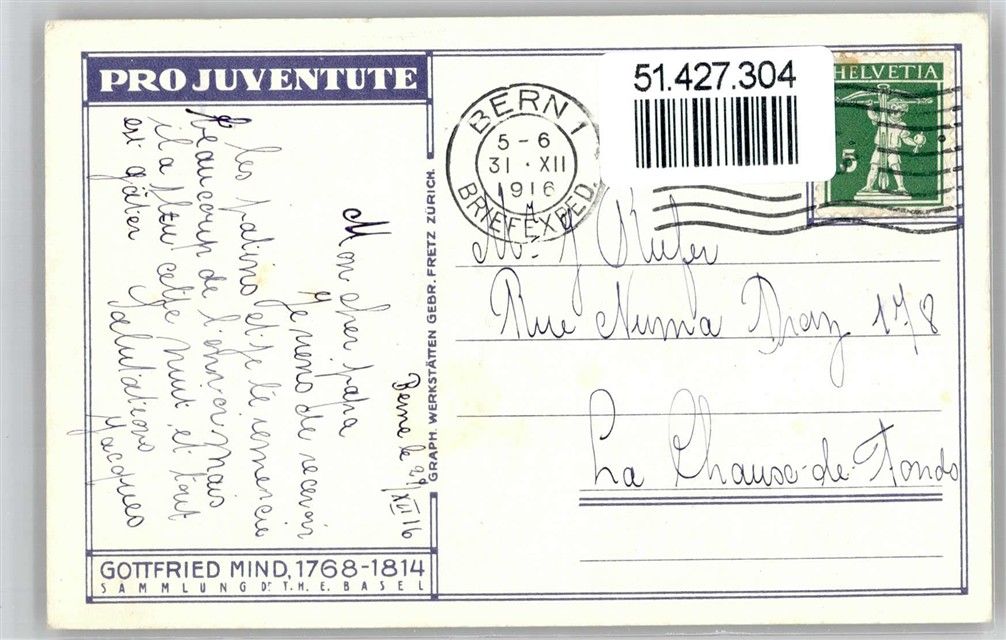 PRO JUVENTUTE
Berne le 29 XII 16
Mon cher papa
Je viens de recevoir
les patins et je te remercie
beaucoup de l'envoi mais
il a plu cette nuit et tout
est gâter Salutations
Jacques
GOTTFRIED MIND, 1768-1814
SAMMLUNG Dr. T.H.E. BASEL
GRAPH. WERKSTÄTTEN GEBR. FRETZ ZÜRICH.
BERN 1
5-6
31·XII
1916
BRIEFEXPED.
51.427.304
HELVETIA
5
Mr. J Kiefer
Rue Numa Droz 178
La Chaux-de-Fonds